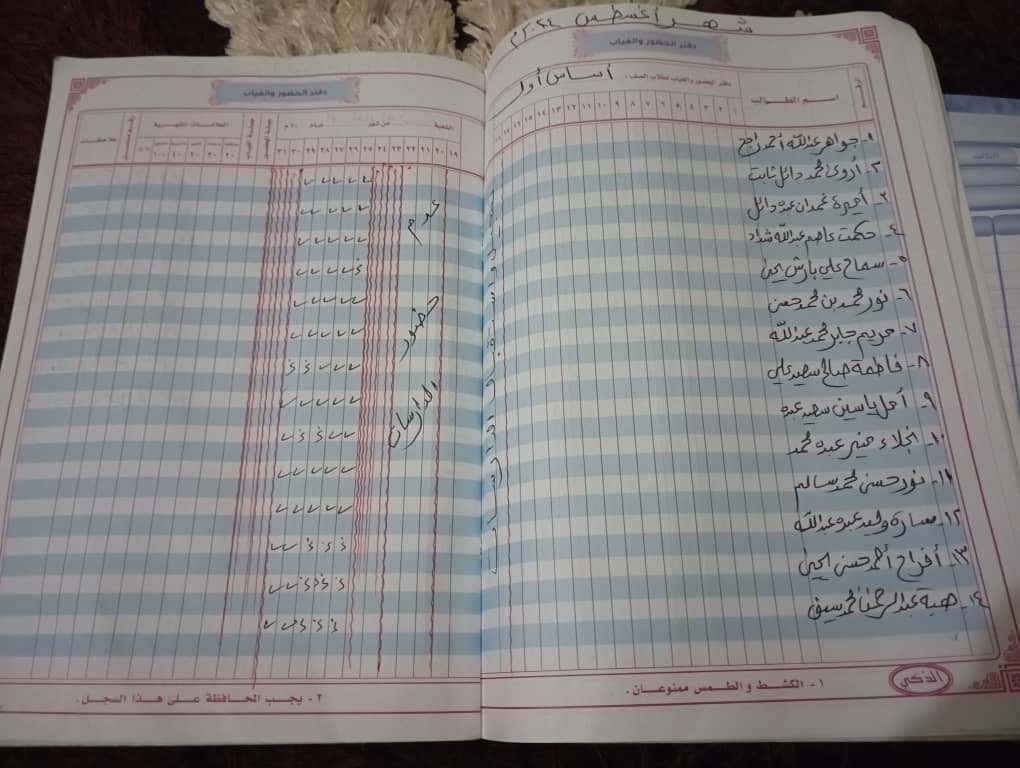 شهر أغسطس ٢٠٢٤م
دفتر الحضور والغياب
دفتر الحضور والغياب لطلاب الصف : أساس أول
اسم الطالب
١ ٢ ٣ ٤ ٥ ٦ ٧ ٨ ٩ ١٠ ١١ ١٢ ١٣ ١٤ ١٥ ١٦ ١٧ ١٨
١- جواهر عبدالله أحمد راجح
٢- أروى محمد دائل ثابت
٣- أميرة غمدان عبده دائل
٤- حكمت عاصم عبدالله شداد
٥- سماح علي يحيى
٦- نور محمد بن محمد حسن
٧- مريم جابر محمد عبدالله
٨- فاطمة صالح سعيد علي
٩- أمل ياسين سعيد عبده
١٠- نجلاء منير عبده محمد
١١- نور حسن محمد سالم
١٢- سارة وليد عبده عبدالله
١٣- أفراح أحمد حسن يحيى
١٤- هبة عبدالرحمن محمد سيف
١- الكشط و الطمس ممنوعان .
الذكي
دفتر الحضور والغياب
الشعبة من شهر عام ٢٠ م
العلامات الشهرية
ملاحظات
١٩ ٢٠ ٢١ ٢٢ ٢٣ ٢٤ ٢٥ ٢٦ ٢٧ ٢٨ ٢٩ ٣٠ ٣١
عدم
حضور
الدارسات
٢- يجب الحافظة على هذا السجل .